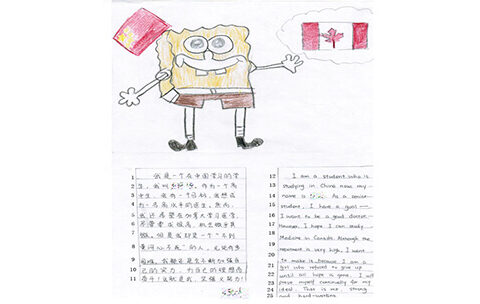 1 我是一个在中国学习的学
2 生,我叫
3 生,我有一个目标,我想成
4 为一名高水平的医生。然而,
5 我还希望在加拿大学习医学,
6 尽管要求很高,
7 做。但是我却是一个“不到
8 黄河心不死”的人,无论有多
9 困难,我都会
10 自己的实力,为自己的理想而
11 奋斗!这就是我,坚强又努力!
12 I am a student who is
13 studying in China now. My
14 name is
15 student, I have a goal —
16 I want to be a good doctor.
17 However, I hope I can study
18 Medicine in Canada. Although the
19 requirement is very high, I want
20 to make it, because I am a
21 girl who refused to give up
22 until all hope is gone. I will
23 prove myself continually for my
24 ideal. That is me, strong
25 and hard-working.